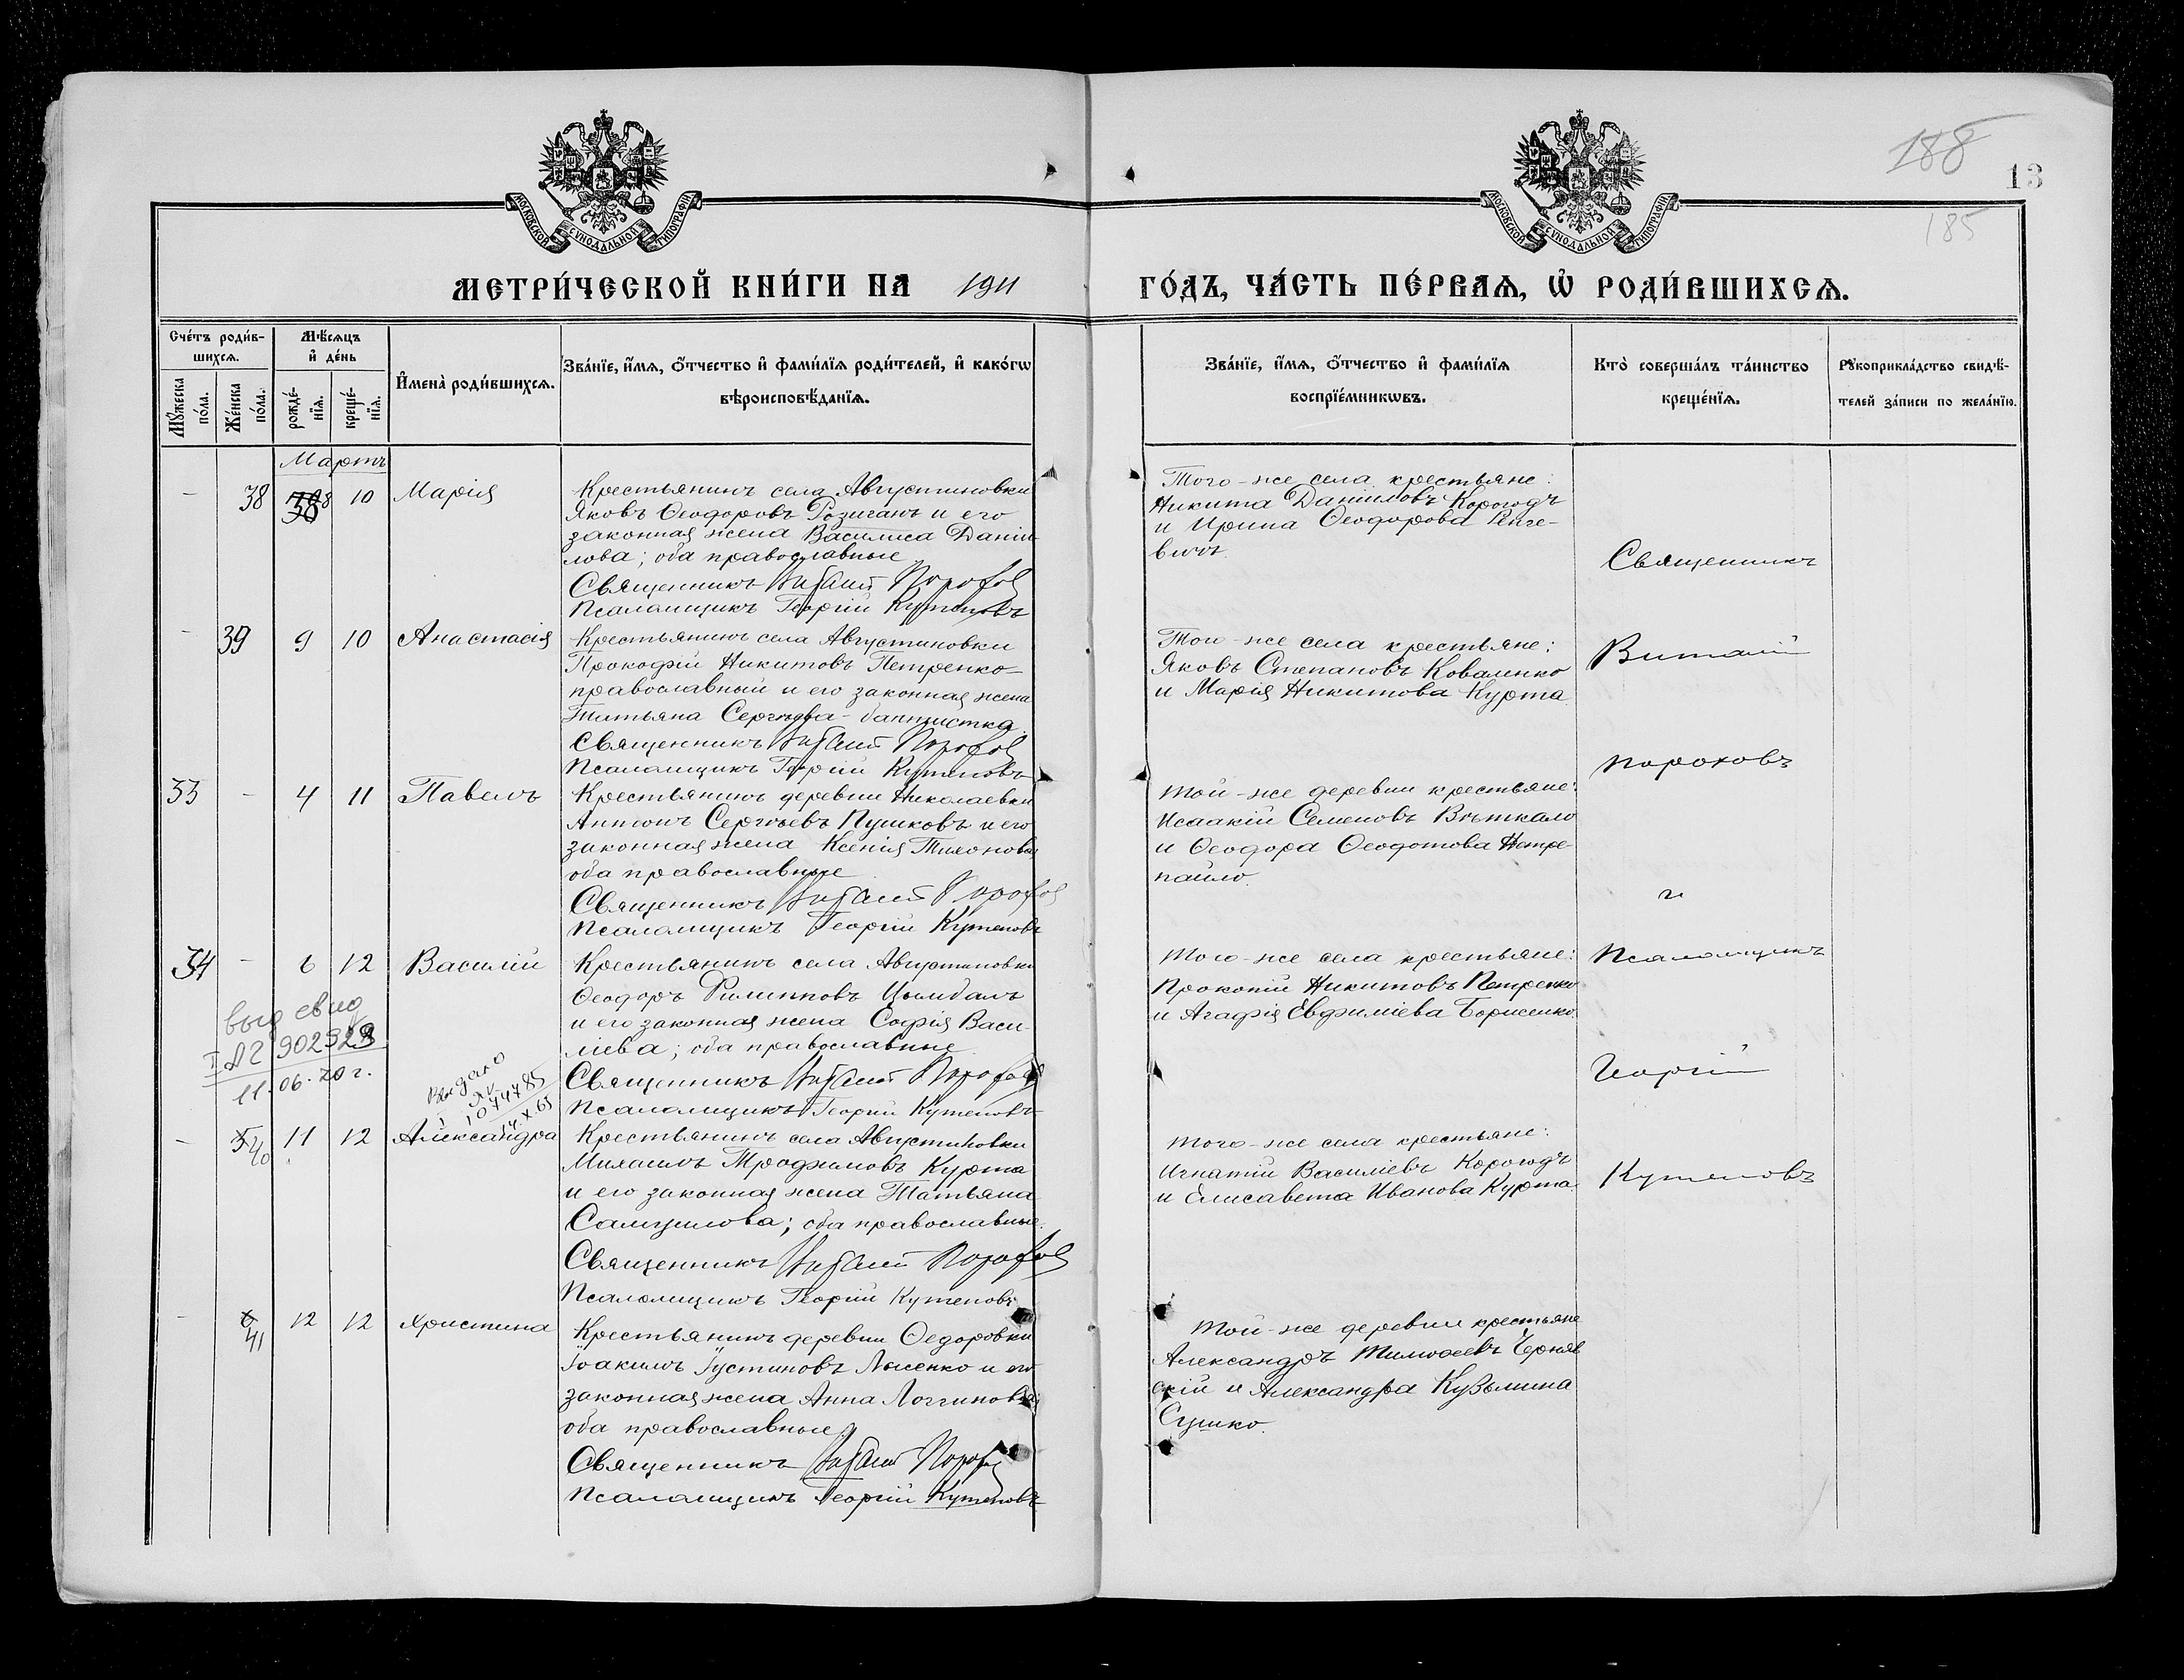 188
13
185
МОСКОВСКОЙ СѴНОДАЛЬНОЙ ТИПОГРАФІИ
МОСКОВСКОЙ СѴНОДАЛЬНОЙ ТИПОГРАФІИ
МЕТРИ́ЧЕСКОЙ КНИ́ГИ НА 1911 ГО́ДЪ, ЧА́СТЬ ПЕ́РВАѦ, Ѡ҆ РОДИ́ВШИХСѦ.
Сче́тъ роди́в-
шихсѧ.
Мꙋ́жеска по́ла.
Же́нска по́ла.
Мѣ́сѧцъ
и҆ де́нь
рожде́-
нїѧ.
креще́-
нїѧ.
И҆мена̀ роди́вшихсѧ.
Зва́нїе, и҆́мѧ, ѻ҆́тчество и҆ фами́лїѧ роди́телей, и҆ како́гѡ
вѣроисповѣ́данїѧ.
Зва́нїе, и҆́мѧ, ѻ҆́тчество и҆ фами́лїѧ
воспрїе́мникѡвъ.
Кто̀ соверша́лъ та́инство
креще́нїѧ.
Рꙋкоприкла́дство свидѣ́-
телей за́писи по жела́нїю.
Мартъ
- 38 8 10 Марія
Крестьянинъ села Августиновки
Яковъ Ѳеодоровъ Розиганъ и его
законная жена Василиса Даніи-
лова; оба православные
Священникъ Виталій Пороховъ
Псаломщикъ Георгій Кутеповъ
Того-же села крестьяне:
Никита Даніиловъ Корогодъ
и Ирина Ѳеодорова Репе-
вичъ.
- 39 9 10 Анастасія
Крестьянинъ села Августиновки
Прокофій Никитовъ Петренко-
православный и его законная жена
Татьяна Сергѣева - баптистка.
Священникъ Виталій Пороховъ
Псаломщикъ Георгій Кутеповъ
Того-же села крестьяне:
Яковъ Степановъ Коваленко
и Марія Никитова Курта.
33 - 4 11 Павелъ
Крестьянинъ деревни Николаевки
Антонъ Сергѣевъ Пушковъ и его
законная жена Ксенія Тихонова
оба православные
Священникъ Виталій Пороховъ
Псаломщикъ Георгій Кутеповъ
Той-же деревни крестьяне:
Исаакій Семеновъ Вѣткало
и Ѳеодора Ѳеодотова Непре-
пайло.
34 - 6 12 Василій
Крестьянинъ села Августиновки
Ѳеодоръ Филипповъ Цымбалъ
и его законная жена Софія Васи-
ліева; оба православные
Священникъ Виталій Пороховъ
Псаломщикъ Георгій Кутеповъ
Того-же села крестьяне:
Прокопій Никитовъ Петренко
и Агафія Евфиміева Борисенко.
выд свид
11.06.70 г.
Выдано
- 40 11 12 Александра
Крестьянинъ села Августиновки
Михаилъ Трофимовъ Курта
и его законная жена Татьяна
Самуилова; оба православные.
Священникъ Виталій Пороховъ
Псаломщикъ Георгій Кутеповъ
Того-же села крестьяне:
Игнатій Василіевъ Корогодъ
и Елисавета Иванова Курта.
- 41 12 12 Христина
Крестьянинъ деревни Ѳедоровки
Іоакимъ Іустиновъ Лысенко и его
законная жена Анна Логгинова;
оба православные
Священникъ Виталій Пороховъ
Псаломщикъ Георгій Кутеповъ
Той-же деревни крестьяне
Александръ Тимоѳеевъ Черняв
скій и Александра Кузьмина
Сушко.
Священникъ
Виталій
Пороховъ
и
Псаломщикъ
Георгій
Кутеповъ